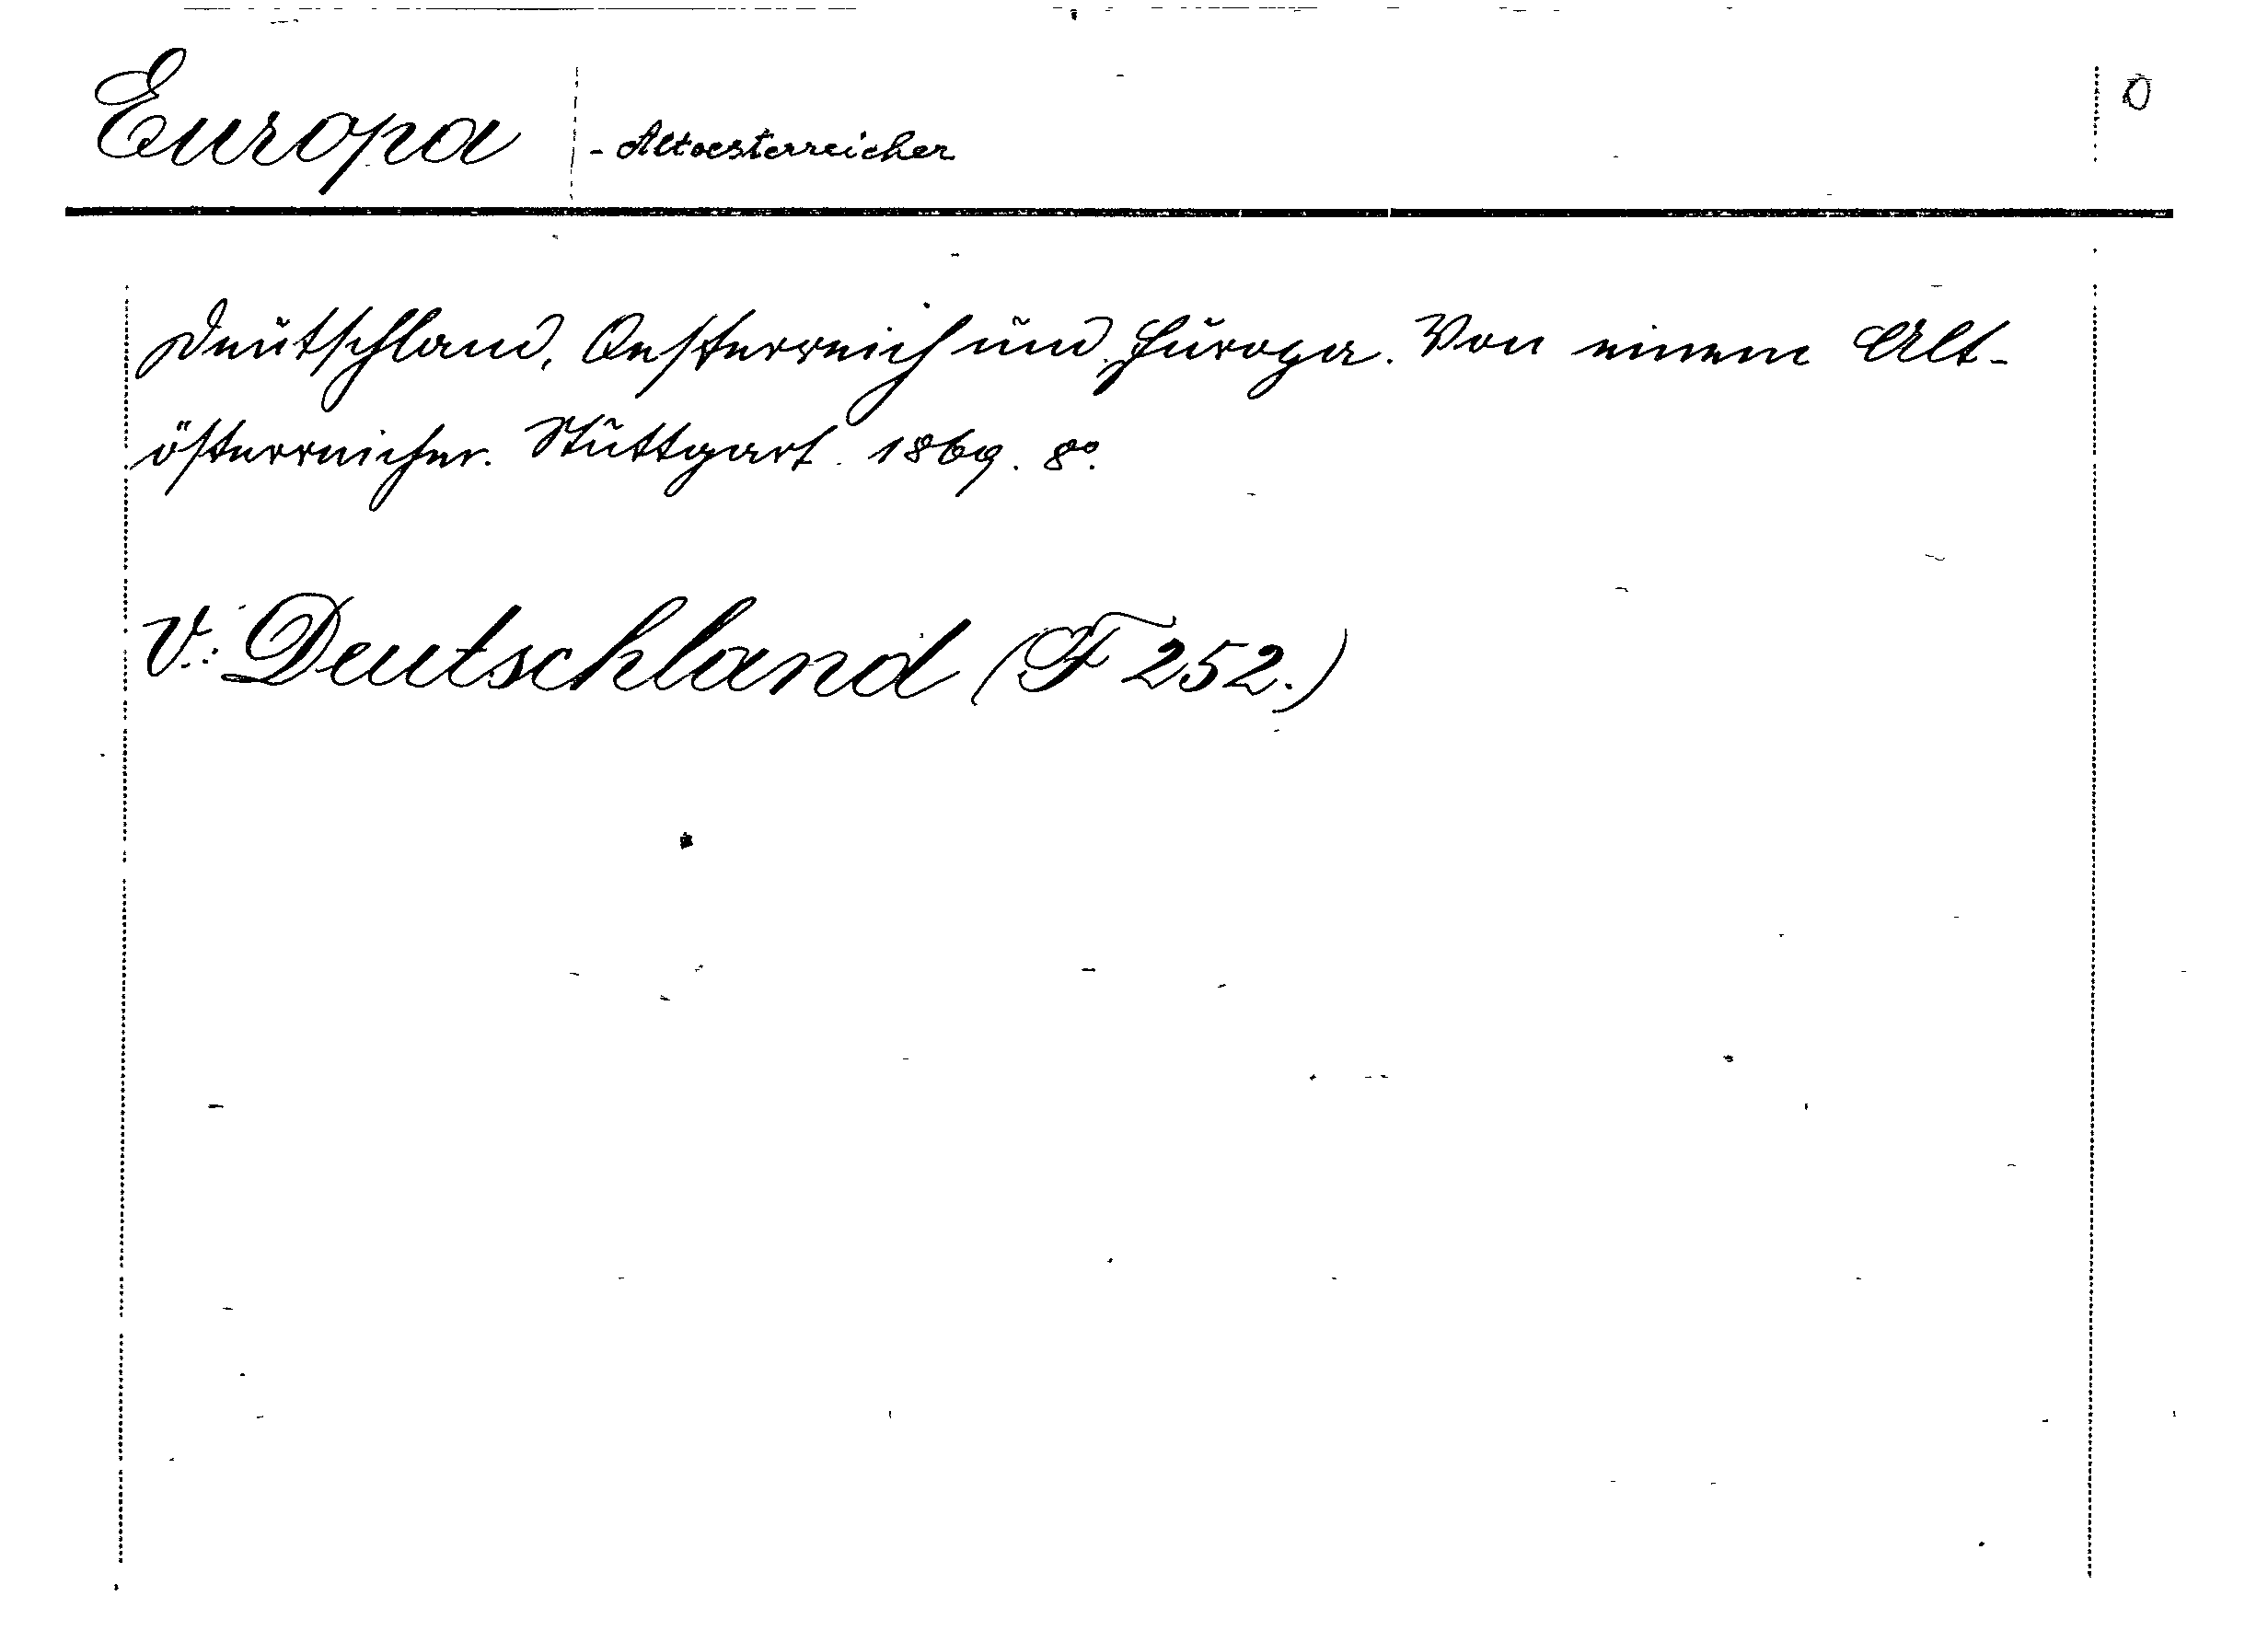 Europa - Altoesterreicher
Deutschland, Oesterreich und Europa. Von einem Alt-
österreicher. Stuttgart. 1869. 8°.
V.: Deutschland (F 252.)